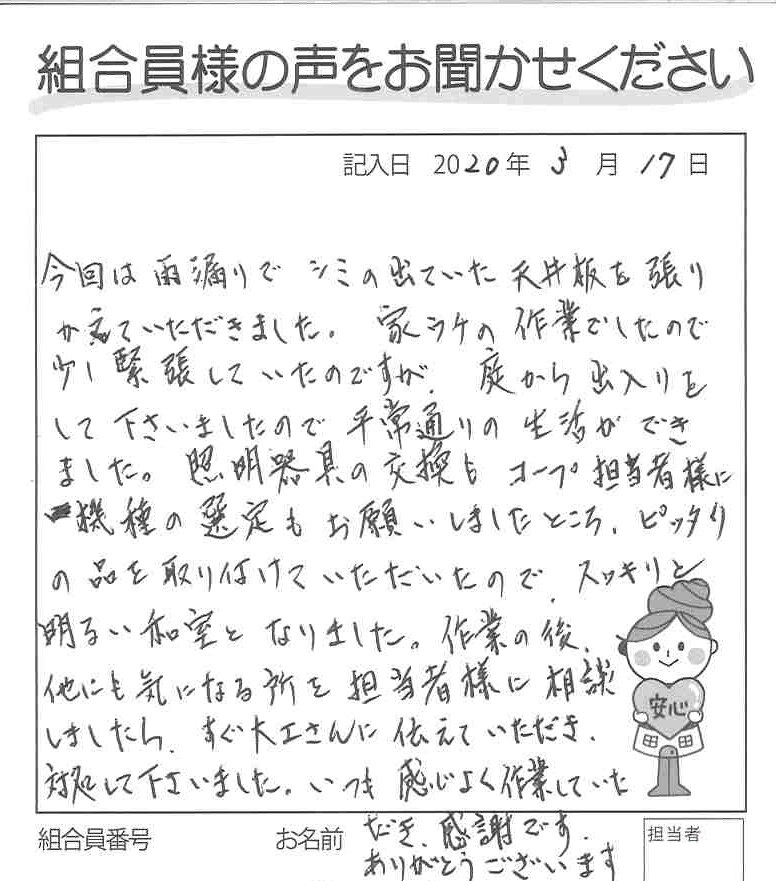 組合員様の声をお聞かせください
記入日 2020年 3月 17日
今回は雨漏りでシミの出ていた天井板を張り
かえていただきました。家ウチの作業でしたので
少し緊張していたのですが、庭から出入りを
して下さいましたので平常通りの生活ができ
ました。照明器具の交換もコープ担当者様に
機種の選定もお願いしましたところ、ピッタリ
の品を取り付けていただいたので、スッキリと
明るい和室となりました。作業の後、
他にも気になる所を担当者様に相談
しましたら、すぐ大工さんに伝えていただき、
対処して下さいました。いつも感じよく作業していた
だき、感謝です。
ありがとうございます
安心
組合員番号 お名前 担当者